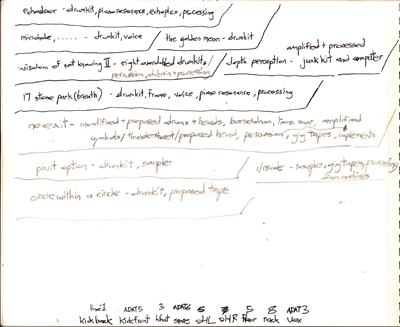 echodoor - drumkit, piano resonance, echoplex, processing
microbake, ...... - drumkit, voice
the golden mean - drumkit
wisdom of not knowing II - eight overdubbed drumkits/
percussion, + processing
depth perception - amplified + processed
junk kit and computer
17 stone park (breath) - drumkit, frame, voice, piano resonance, processing
no exit - modified + prepared drums + heads, bassdrum, amplified
cymbals/thundersheet/prepared head, percussion, gig tapes, implements
pivot option - drumkit, sampler
inside - sampler, gig tapes, processing
drum machines
circle within a circle - drumkit, prepared tape
line 1 ADAT5 3 ADAT6 6 7 5 8 ADAT3
kick back kick front hihat snare OHL OHR floor rack vox